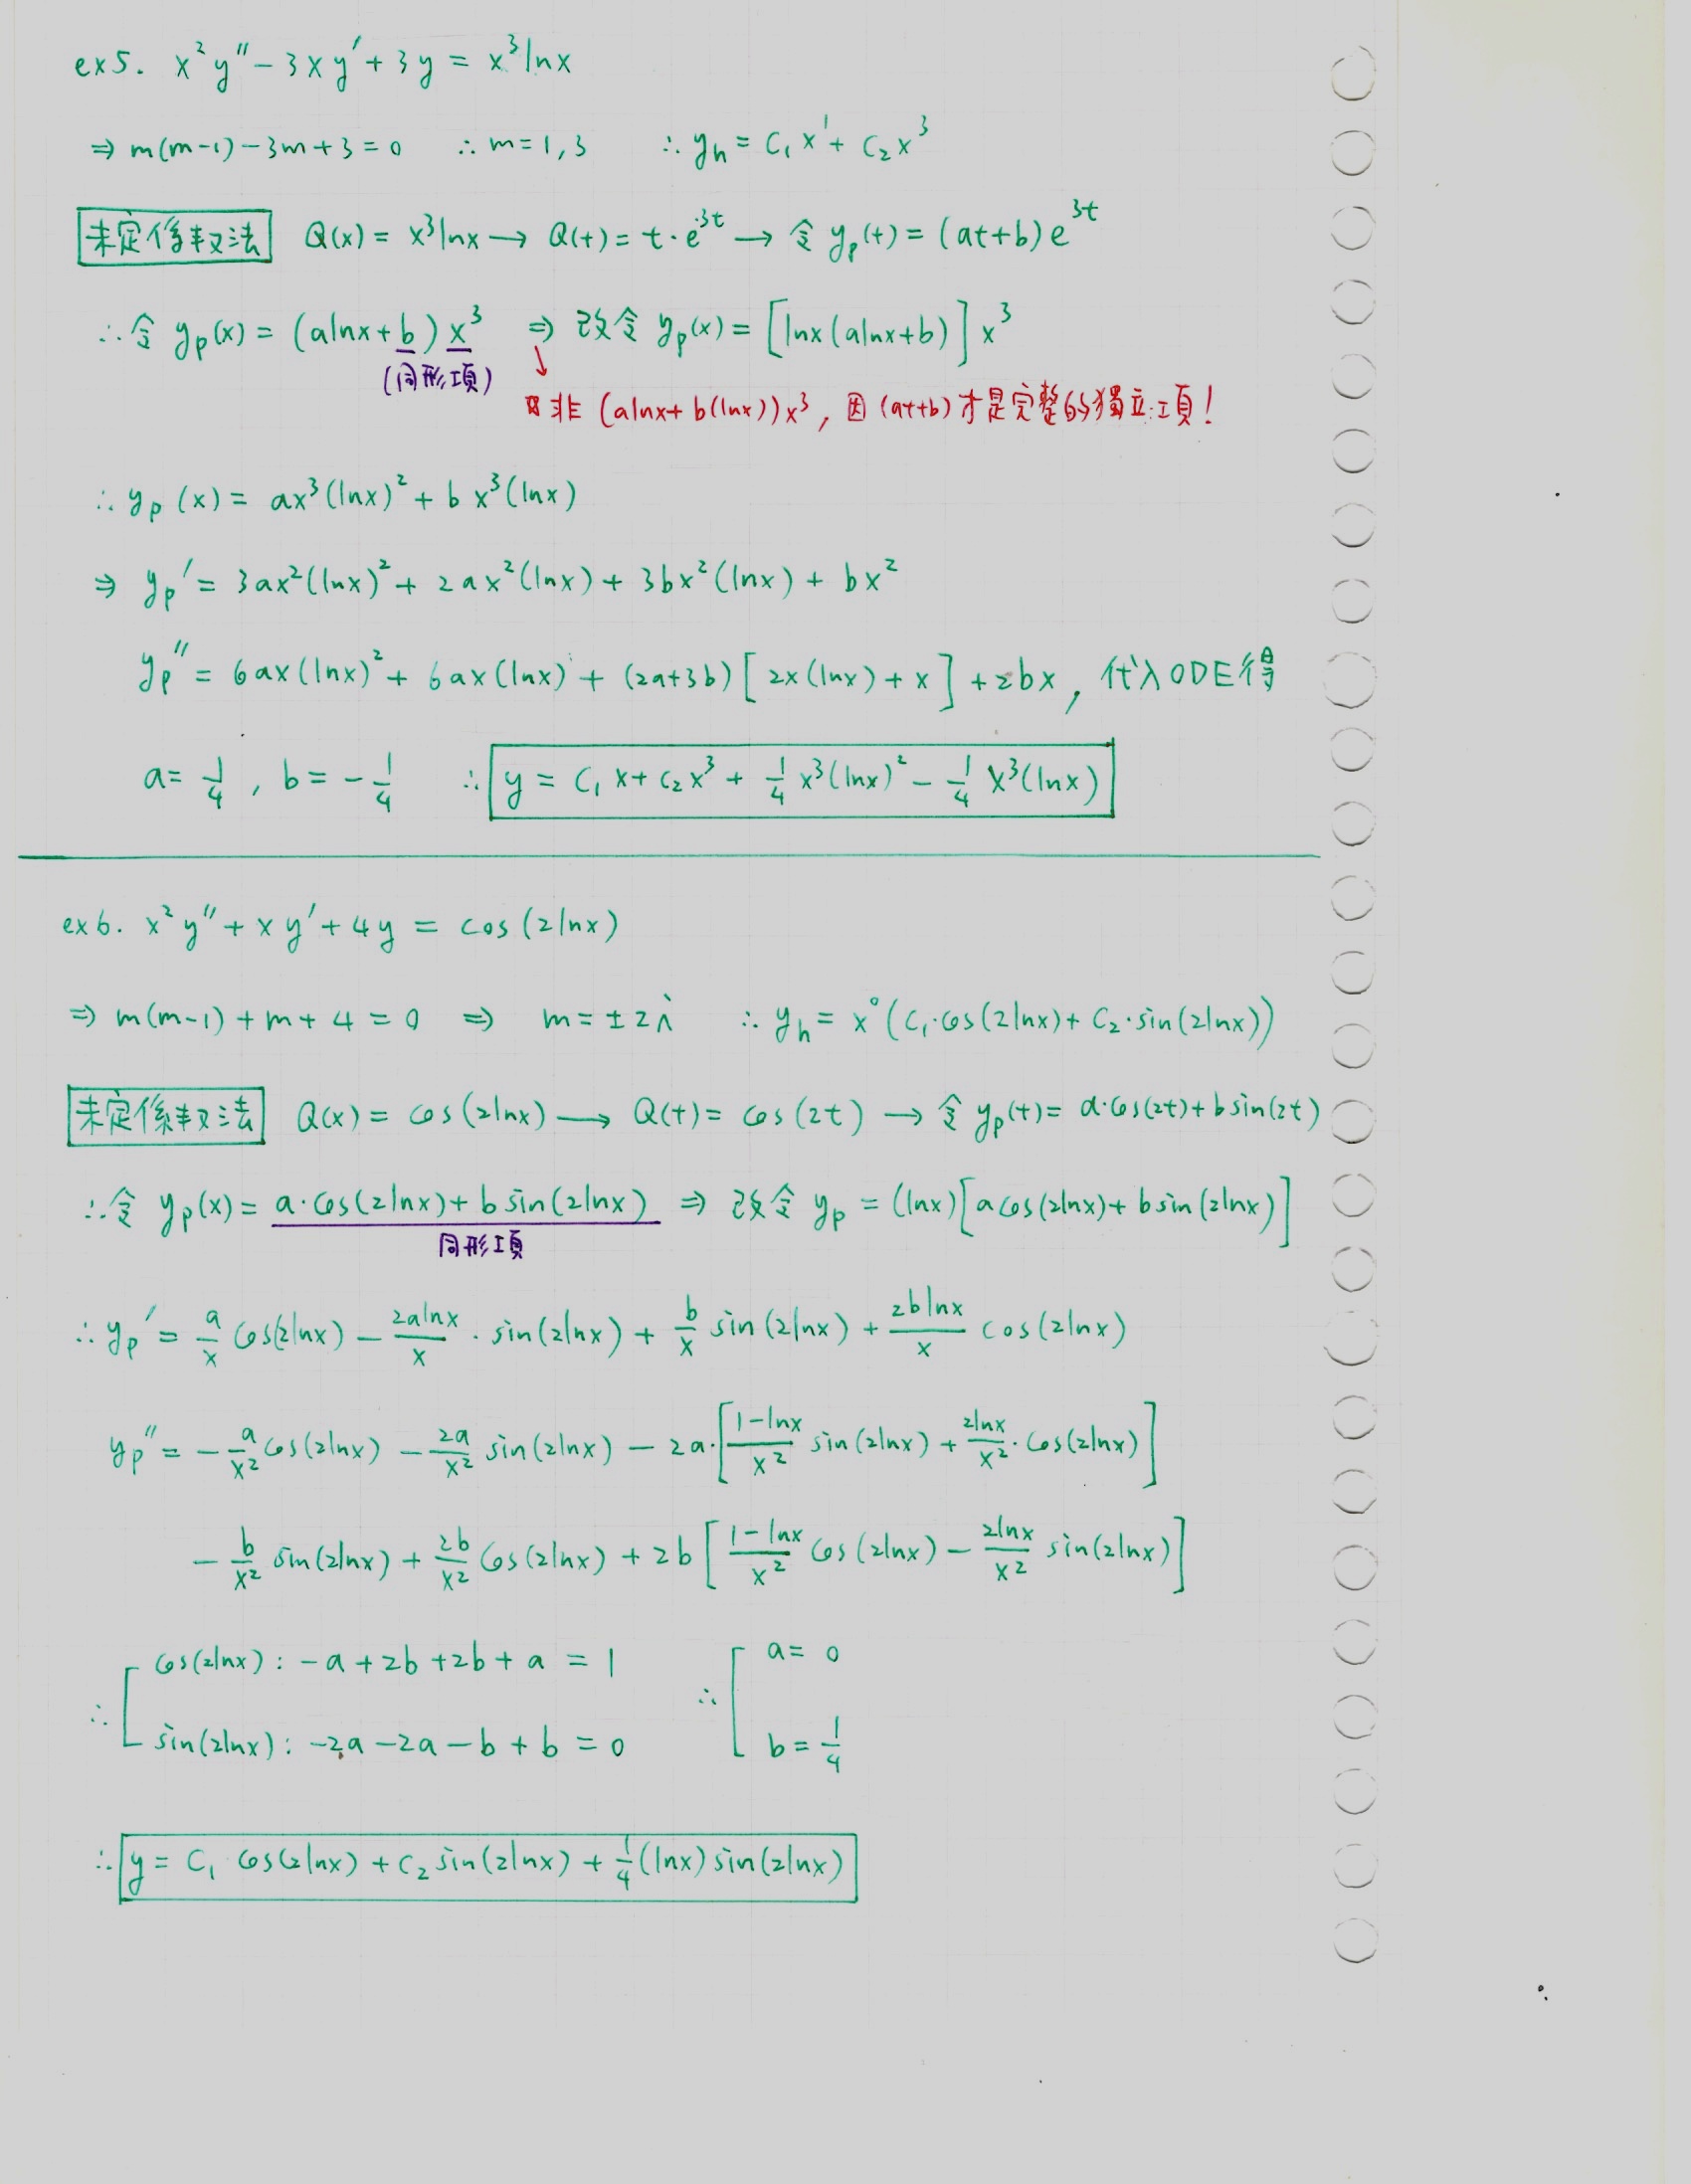 ex5. x²y″ - 3xy′ + 3y = x³lnx
⇒ m(m-1) - 3m + 3 = 0 ∴ m = 1, 3 ∴ y_h = C₁x¹ + C₂x³
未定係数法 Q(x) = x³lnx → Q(t) = t·e^{3t} → 令 y_p(t) = (at+b)e^{3t}
∴ 令 y_p(x) = (alnx+b)x³ ⇒ 改令 y_p(x) = [lnx(alnx+b)]x³
(同形項) ↓
非 (alnx + b(lnx))x³, 因 (at+b) 才是完整的獨立項!
∴ y_p(x) = ax³(lnx)² + bx³(lnx)
⇒ y_p′ = 3ax²(lnx)² + 2ax²(lnx) + 3bx²(lnx) + bx²
y_p″ = 6ax(lnx)² + 6ax(lnx) + (2a+3b)[2x(lnx) + x] + 2bx, 代入ODE得
a = 1/4, b = -1/4 ∴ y = C₁x + C₂x³ + 1/4 x³(lnx)² - 1/4 x³(lnx)
ex6. x²y″ + xy′ + 4y = cos(2lnx)
⇒ m(m-1) + m + 4 = 0 ⇒ m = ±2i ∴ y_h = x⁰(C₁·cos(2lnx) + C₂·sin(2lnx))
未定係数法 Q(x) = cos(2lnx) → Q(t) = cos(2t) → 令 y_p(t) = a·cos(2t) + bsin(2t)
∴ 令 y_p(x) = a·cos(2lnx) + bsin(2lnx) ⇒ 改令 y_p = (lnx)[acos(2lnx) + bsin(2lnx)]
同形項
∴ y_p′ = a/x cos(2lnx) - 2alnx/x · sin(2lnx) + b/x sin(2lnx) + 2blnx/x cos(2lnx)
y_p″ = -a/x² cos(2lnx) - 2a/x² sin(2lnx) - 2a·[(1-lnx)/x² sin(2lnx) + 2lnx/x² · cos(2lnx)]
- b/x² sin(2lnx) + 2b/x² cos(2lnx) + 2b[(1-lnx)/x² cos(2lnx) - 2lnx/x² sin(2lnx)]
∴ [cos(2lnx): -a + 2b + 2b + a = 1 ∴ [a = 0
sin(2lnx): -2a - 2a - b + b = 0 b = 1/4
∴ y = C₁ cos(2lnx) + C₂ sin(2lnx) + 1/4 (lnx) sin(2lnx)